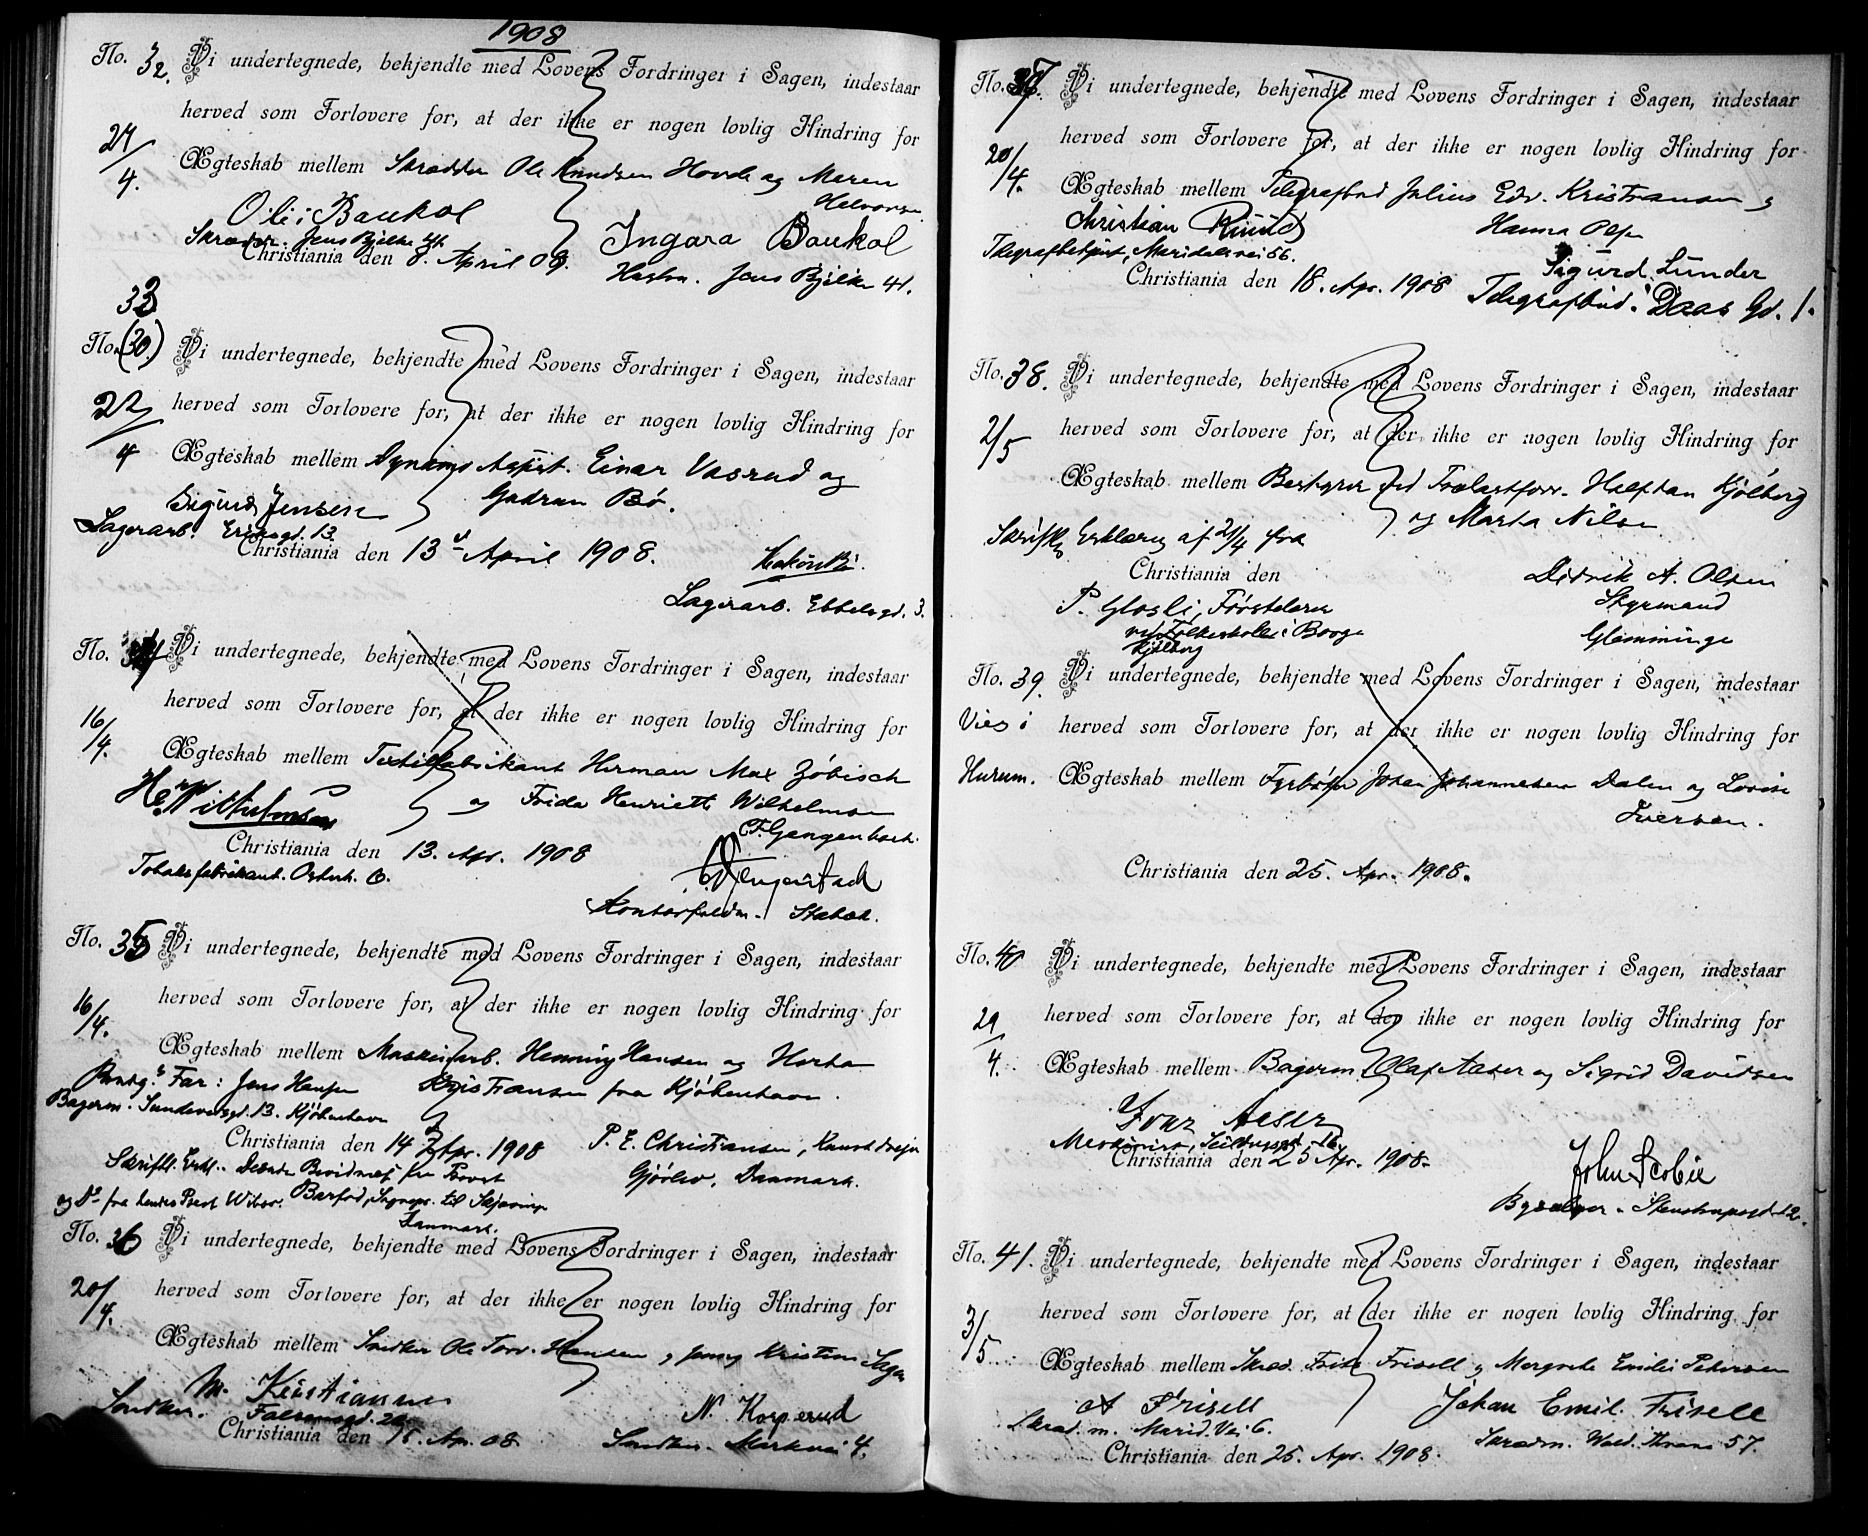 1908
No. 32. Vi undertegnede, bekjendte med Lovens Fordringer i Sagen, indestaar
herved som Forlovere for, at der ikke er nogen lovlig Hindring for
27/4. Ægteskab mellem Skrædder Ole Knudsen Hovde og Maren
Halvorsen
Ole Baukol
Ingara Baukol
Skrædder. Jens Bjelke 41.
Christiania den 8. April 08.
Hustru. Jens Bjelke 41.
33
No. (30.) Vi undertegnede, bekjendte med Lovens Fordringer i Sagen, indestaar
22/4 herved som Forlovere for, at der ikke er nogen lovlig Hindring for
Ægteskab mellem Einar Vasrud og
Gudrun Bø.
Sigurd Jensen
Lagerarb. 13
Christiania den 13 April 1908.
Lagerarb. Ebbelsgd. 3.
No. 34 Vi undertegnede, bekjendte med Lovens Fordringer i Sagen, indestaar
16/4. herved som Forlovere for, at der ikke er nogen lovlig Hindring for
Ægteskab mellem Textilfabrikant Herman Max Zöbisch
og Frida Henriette Wilhelmsen
H. Wilhelmsen
F. Gengenbach.
Christiania den 13. Apr. 1908
Tobaksfabrikant.
Stabæk.
No. 35 Vi undertegnede, bekjendte med Lovens Fordringer i Sagen, indestaar
16/4. herved som Forlovere for, at der ikke er nogen lovlig Hindring for
Ægteskab mellem Maskinarb. Henning Hansen og Herta
Kristiansen fra Kjøbenhavn.
Far: Jens Hansen
Bagerm. 13. Kjøbenhavn
Christiania den 14 Apr. 1908
P. E. Christiansen,
Gjörlev, Danmark.
Skriftl. Erkl.
Danmark.
No. 36 Vi undertegnede, bekjendte med Lovens Fordringer i Sagen, indestaar
20/4. herved som Forlovere for, at der ikke er nogen lovlig Hindring for
Ægteskab mellem Snedker Ole Torv. Hansen og Jenny Kristine
M. Kristiansen
N. Korperud
Snedker.
Christiania den 16. Ap. 08.
Snedker. Markvei 4.
No. 37. Vi undertegnede, bekjendte med Lovens Fordringer i Sagen, indestaar
herved som Forlovere for, at der ikke er nogen lovlig Hindring for
20/4. Ægteskab mellem Telegrafbud Julius Edv. Kristiansen og
Hanna Olsen
Christian Ruud
Telegrafbetjent, Maridalsvei 56.
Sigurd Lunder
Christiania den 18. Apr. 1908
Telegrafbud. Daas Gd. 1.
No. 38. Vi undertegnede, bekjendte med Lovens Fordringer i Sagen, indestaar
2/5 herved som Forlovere for, at der ikke er nogen lovlig Hindring for
Ægteskab mellem Bestyrer ved Halfdan Kjölberg
og Marta Nilsen
Skriftlig Erklæring af 21/4 fra
Christiania den
Didrik A. Olsen
Styrmand
Glemminge
P. Glosli, Førstelærer
ved Folkeskolen i Borge
Kjölberg
No. 39. Vi undertegnede, bekjendte med Lovens Fordringer i Sagen, indestaar
Vies i herved som Forlovere for, at der ikke er nogen lovlig Hindring for
Hurum. Ægteskab mellem Fyrbøter Johan Johannesen Dalen og Lovise
Iversen.
Christiania den 25. Apr. 1908.
No. 40 Vi undertegnede, bekjendte med Lovens Fordringer i Sagen, indestaar
herved som Forlovere for, at der ikke er nogen lovlig Hindring for
29/4. Ægteskab mellem Bagerm. Olaf Aaser og Sigrid Davidsen
Aaser
Christiania den 25 Apr. 1908.
John Scobie
Stenstrupsgd. 12.
No. 41. Vi undertegnede, bekjendte med Lovens Fordringer i Sagen, indestaar
herved som Forlovere for, at der ikke er nogen lovlig Hindring for
3/5 Ægteskab mellem Skræd. Fritz Frisell og Margrete Emilie Petersen
A Frisell
Johan Emil Frisell
Skræd. m. Marid. Vei 6.
Skrædm. Wald. Thranes 57.
Christiania den 25. Apr. 1908.